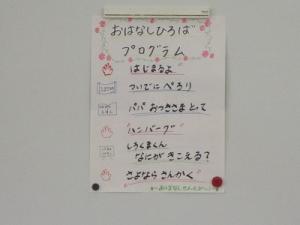 おはなしひろば
プログラム
はじまるよ
ついでにぺろり
パパ おつきさま とって
"ハンバーグ"
しろくまくん
なにが きこえる?
さよなら さんかく